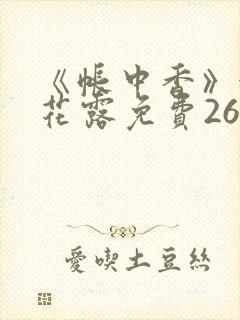 《帳中香》
花露免費26
愛喫土豆絲